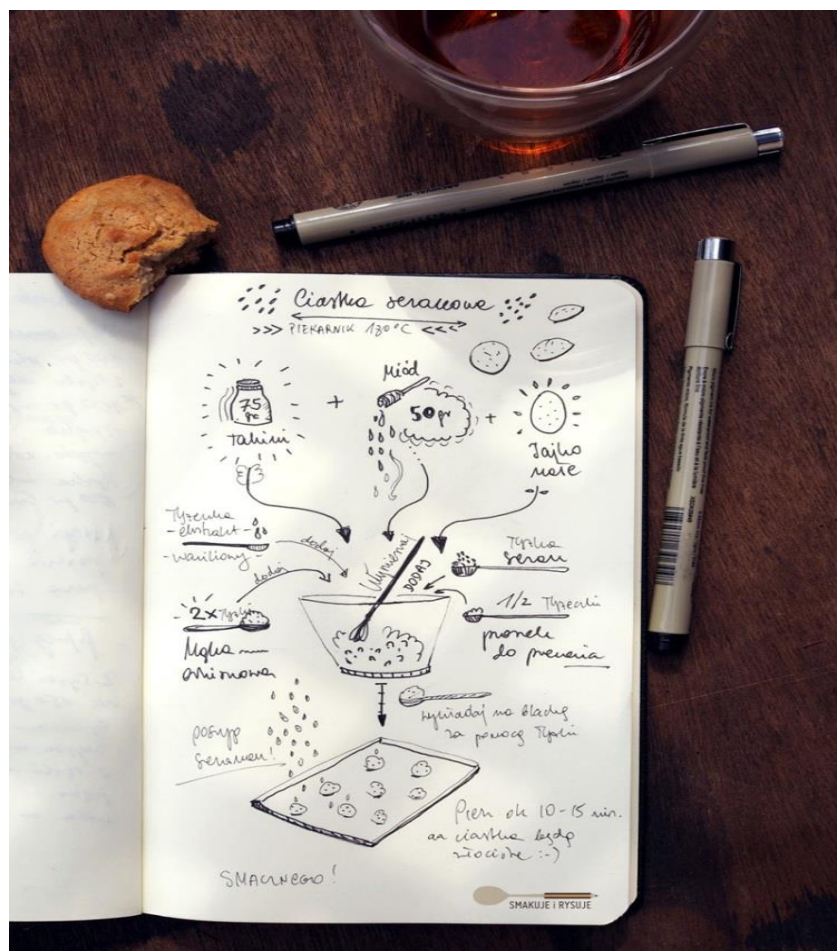 Ciastka sezamowe
>>> PIEKARNIK 180°C <<<
75 gr
Tahini
+
Miód
50 gr
+
Jajko małe
Łyżeczka
- ekstrakt -
- waniliowy -
dodaj
dodaj
Wymieszaj
DODAJ
Łyżka
sezam
2x Łyżki
Mąka
owsianowa
1/2 Łyżeczki
proszek
do pieczenia
wykładaj na blachę
za pomocą łyżki
posyp
sezamem!
Piecz ok 10-15 min.
aż ciastka będą
złociste :-)
SMACZNEGO!
SMAKUJE i RYSUJE